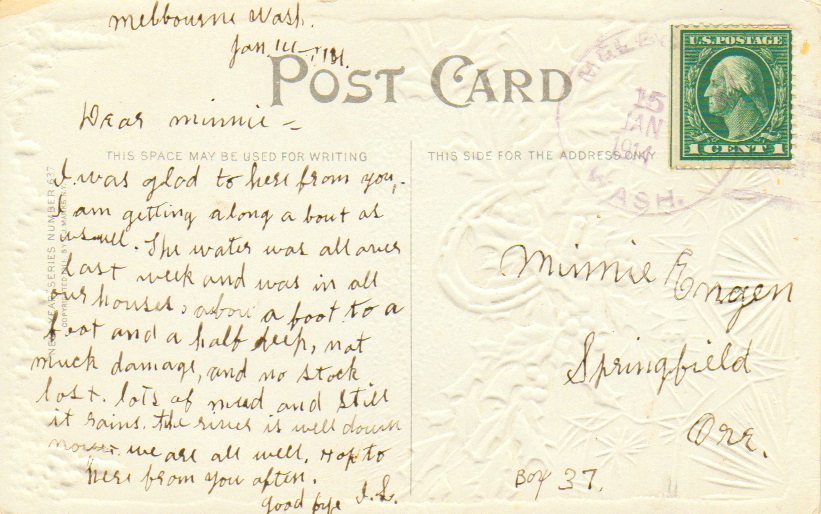 Melbourne Wash.
Jan 14-1914.
POST CARD
Dear Minnie-
THIS SPACE MAY BE USED FOR WRITING
I was glad to here from you,
I am getting along a bout as
usuel. The water was all over
last week and was in all
our houses, about a foot to a
foot and a half deep, not
much damage, and no stock
lost. lots of mud and still
it rains. the river is well down
now. we are all well. Hop to
here from you often.
good bye I.L.
NEW YEAR SERIES NUMBER 637
THIS SIDE FOR THE ADDRESS ONLY
15
JAN
1914
WASH.
U.S. POSTAGE
1 CENT 1
Minnie Engen
Springfield
Ore.
Box 37.